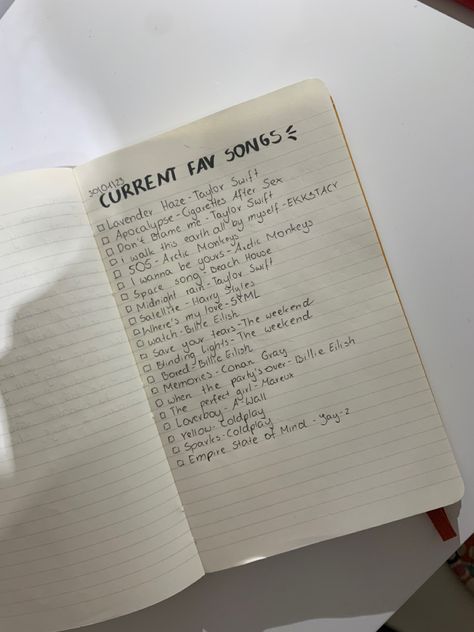 30/01/23
CURRENT FAV SONGS
Lavender Haze - Taylor Swift
Apocalypse - Cigarettes After Sex
Don't Blame me - Taylor Swift
I walk this earth all by myself - EKKSTACY
505 - Arctic Monkeys
I wanna be yours - Arctic Monkeys
Space song - Beach House
Midnight rain - Taylor Swift
Satellite - Harry Styles
Where's my love - SYML
watch - Billie Eilish
Save your tears - The weekend
Blinding Lights - The weekend
Bored - Billie Eilish
Memories - Conan Gray
When the party's over - Billie Eilish
The perfect girl - Mareux
Loverboy - A-Wall
Yellow - Coldplay
Sparks - Coldplay
Empire State of Mind - yay-z